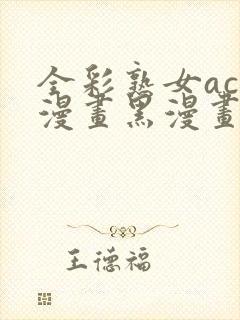 全彩熟女ac
漫畫黑漫畫
王德福